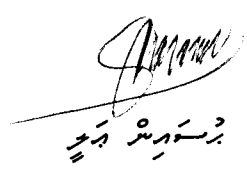 ޙުސައިން ޢަލީ